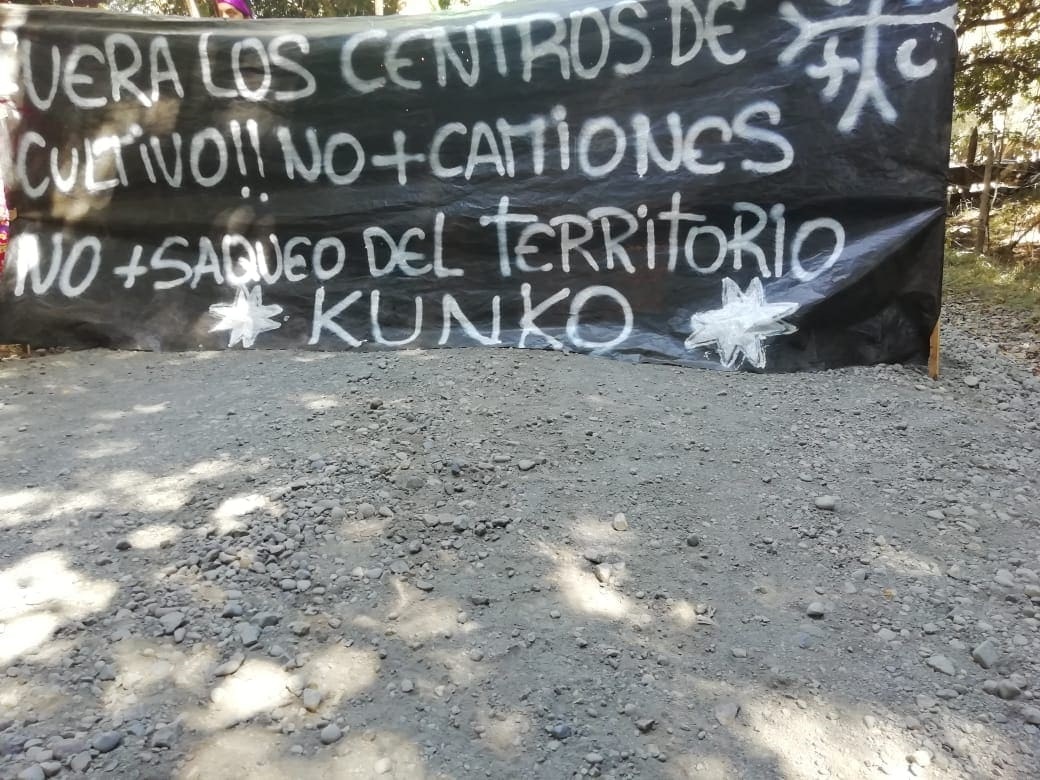 UERA LOS CENTROS DE
CULTIVO!! NO + CAMIONES
NO + SAQUEO DEL TERRITORIO
KUNKO